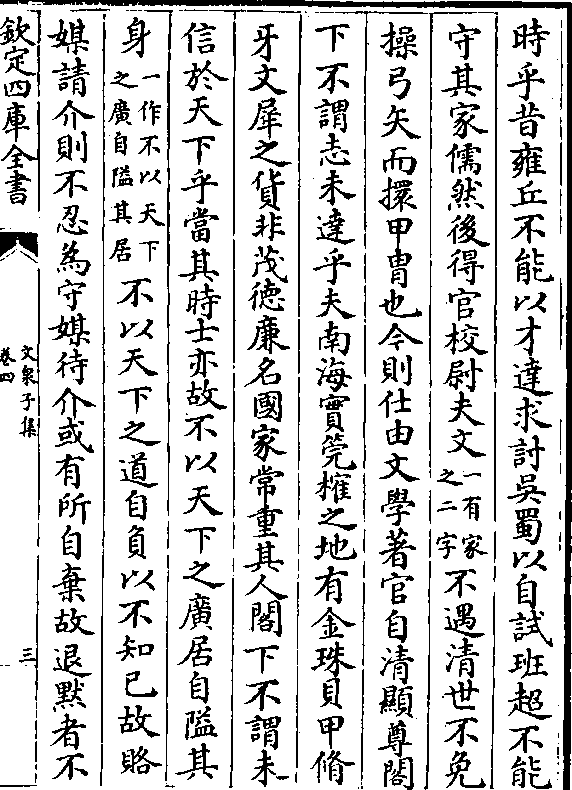 時乎昔雍丘不能以才達求討吳蜀以自試班超不能
守其家儒然後得官校尉夫文一有家之二字不遇清世不免
操弓矢而擐甲胄也今則仕由文學著官自清顯尊閣
下不謂志未達乎夫南海實筦榷之地有金珠貝甲脩
牙文犀之貨非茂德廉名國家常重其人閣下不謂未
信於天下乎當其時士亦故不以天下之廣居自隘其
身一作不以天下之廣自隘其居不以天下之道自負以不知已故賂
媒請介則不忍為守媒待介或有所自棄故退黙者不
欽定四庫全書
文泉子集
卷四
三